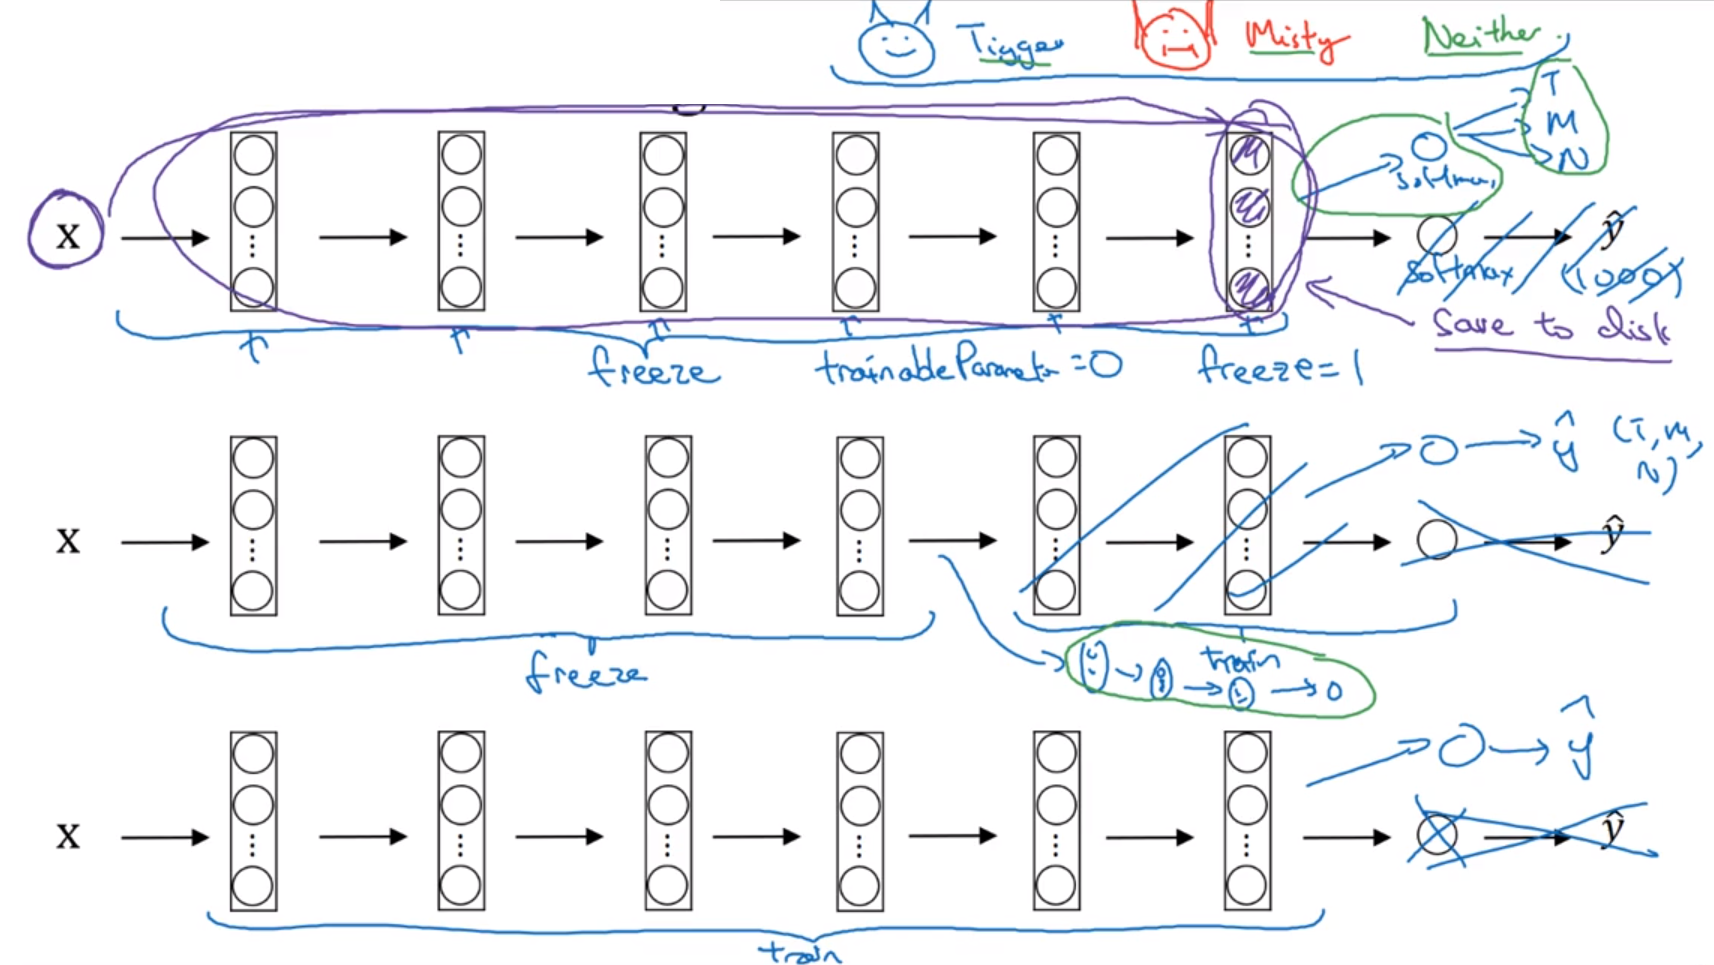 Tigger Misty Neither.
T
M
N
softmax
x ŷ
softmax (1000)
save to disk
freeze trainableParameter = 0 freeze = 1
ŷ (T, M, N)
x ŷ
train
freeze
ŷ
x ŷ
train